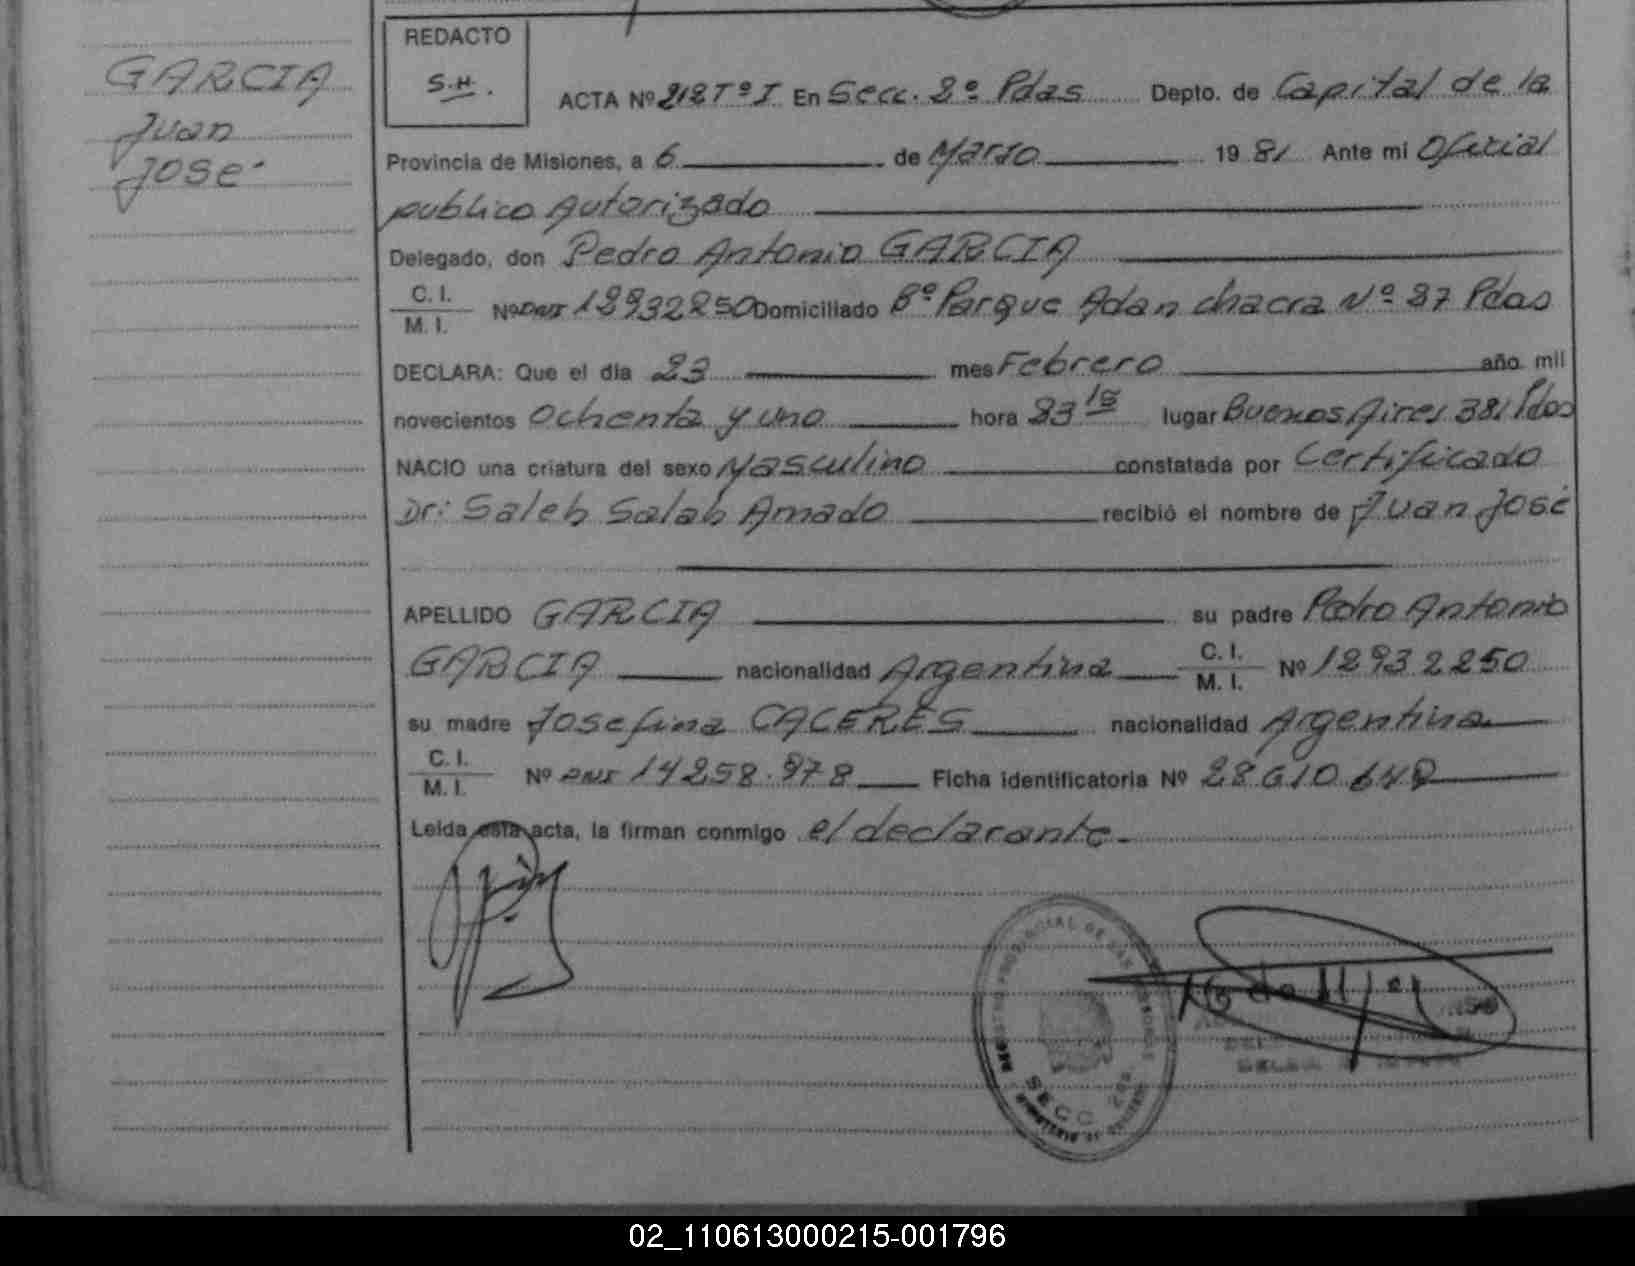 GARCIA
Juan
José
REDACTO
S.H.
ACTA Nº 218 Tº I En Secc. 2º Pdas Depto. de Capital de la
Provincia de Misiones, a 6 de Marzo 1981 Ante mi Oficial
publico Autorizado
Delegado, don Pedro Antonio GARCIA
C. I.
M. I. Nº DNI 12932250 Domiciliado Bº Parque Adan chacra Nº 37 Pdas
DECLARA: Que el día 23 mes Febrero año mil
novecientos Ochenta y uno hora 23 15 lugar Buenos Aires 381 Pdas
NACIO una criatura del sexo Masculino constatada por Certificado
Dr: Saleh Salah Amado recibió el nombre de Juan José
APELLIDO GARCIA su padre Pedro Antonio
GARCIA nacionalidad Argentina C. I. M. I. Nº 12932250
su madre Josefina CACERES nacionalidad Argentina
C. I.
M. I. Nº DNI 14258.978 Ficha identificatoria Nº 28.610.648
Leída esta acta, la firman conmigo el declarante.-
SECC 2da.
02_110613000215-001796